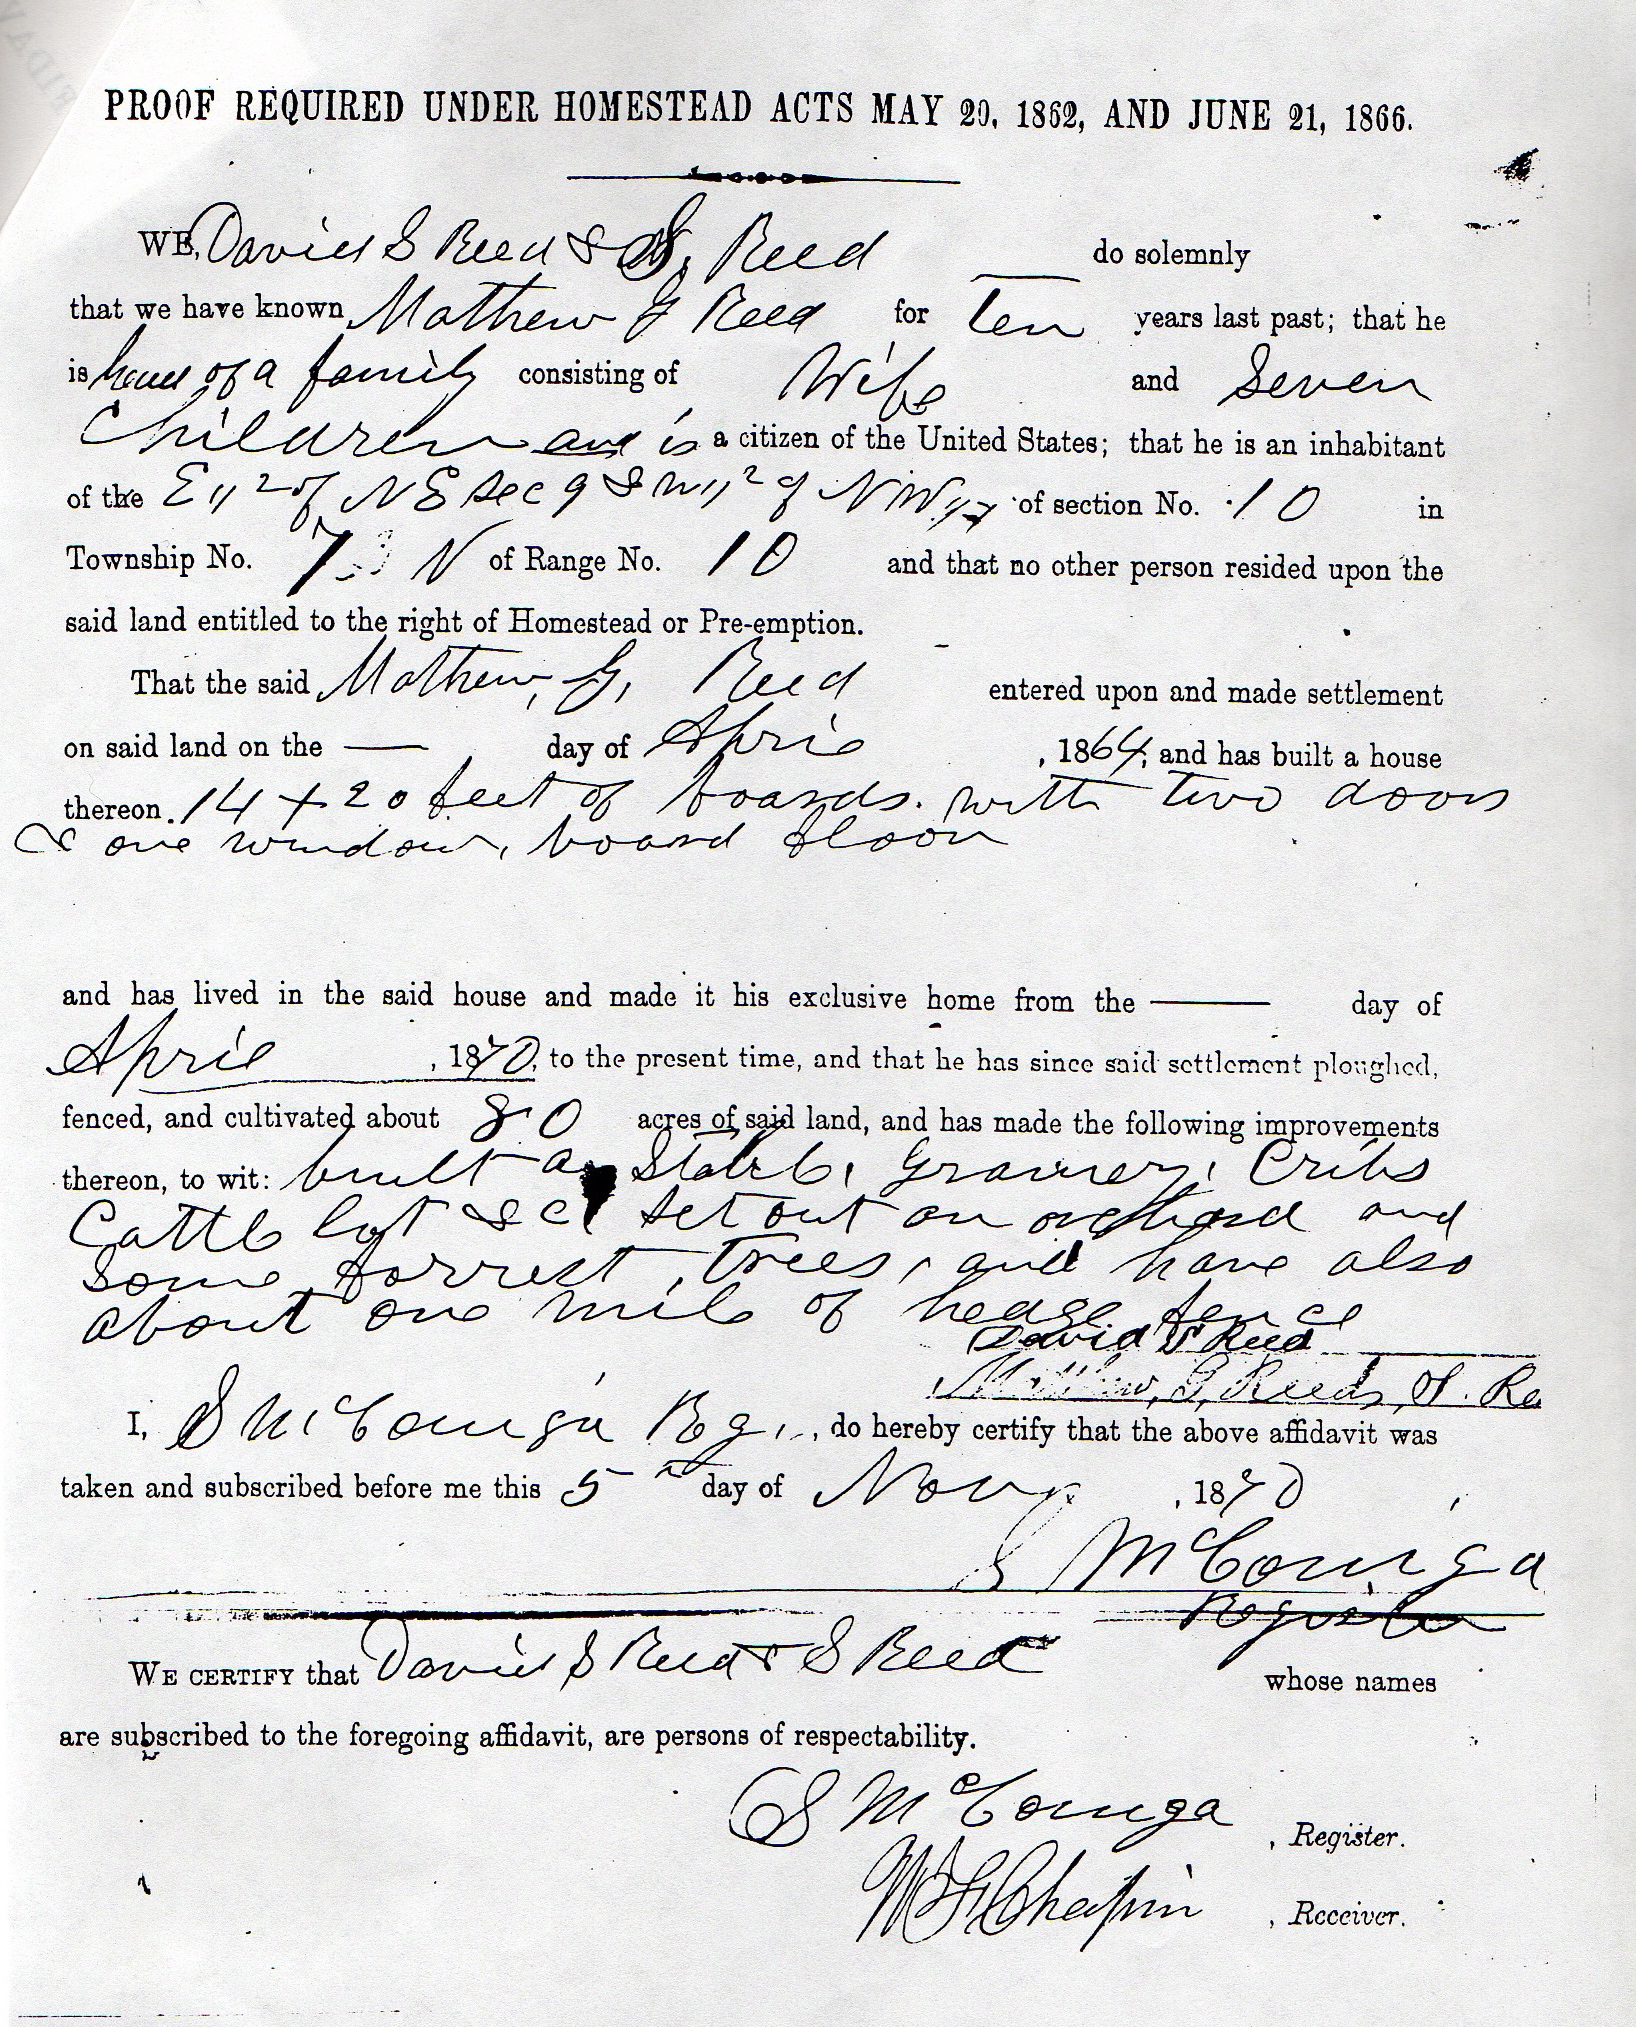 PROOF REQUIRED UNDER HOMESTEAD ACTS MAY 20, 1862, AND JUNE 21, 1866.
WE, David S Reed & S. Reed do solemnly
that we have known Mathew G Reed for Ten years last past; that he
is head of a family consisting of Wife and Seven
Children and is a citizen of the United States; that he is an inhabitant
of the E 1/2 of NE Sec 9 & W 1/2 of NW 1/4 of section No. 10 in
Township No. 7 N of Range No. 10 and that no other person resided upon the
said land entitled to the right of Homestead or Pre-emption.
That the said Mathew, G, Reed entered upon and made settlement
on said land on the — day of April, 1864, and has built a house
thereon. 14 + 20 feet of boards. with two doors
& one window, board floor
and has lived in the said house and made it his exclusive home from the — day of
April, 1870, to the present time, and that he has since said settlement ploughed,
fenced, and cultivated about 80 acres of said land, and has made the following improvements
thereon, to wit: built a Stable, Granery, Cribs
Cattle lot &c set out an orchard and
Some forrest trees, and have also
about one mile of hedge fence
David S Reed
Reed
I, S McConiga Reg., do hereby certify that the above affidavit was
taken and subscribed before me this 5th day of Nov, 1870
S McConiga
Register
WE CERTIFY that David S Reed & S Reed whose names
are subscribed to the foregoing affidavit, are persons of respectability.
S McConiga, Register.
Chapin, Receiver.